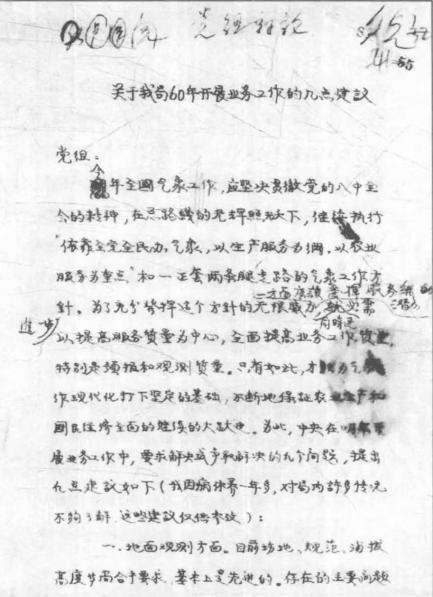 党组讨论
关于我局60年开展业务工作的几点建议
党组:
今年全国气象工作,应坚决贯彻党的八中全
会的精神,在总路线的光辉照耀下,继续执行
"依靠全党全民办气象,以生产服务为纲,以农业
服务为重点"和一正套两条腿走路的气象工作方
针。为了充分发挥这个方针的无限威力,
一方面应该 发挥服务
进一步
以提高服务质量为中心,全面提高业务工作质量,
特别是预报和观测质量。只有如此,才 为气
作现代化打下坚定的基础,不断地保证农业生产和
国民经济全面的继续的大跃进。为此,中央在
展业务工作中,要求解决或争取解决的九个问题,提出
九点建议如下(我因病休养一年多,对局内许多情况
不够了解,这些建议仅供参考):
一、地面观测方面。目前场地、规范、海拔
高度皆尚合乎要求,基本上是先进的。存在的主要问题